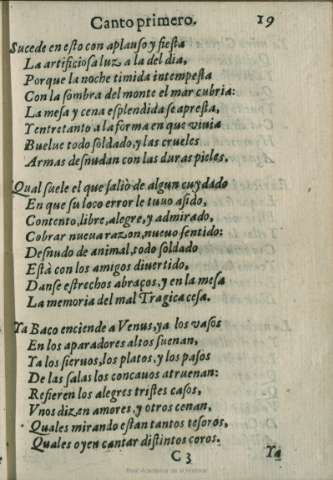 Canto primero. 19
Sucede en esto con aplauso y fiesta
La artificiosa luz a la del dia,
Porque la noche timida intempesta
Con la sombra del monte el mar cubria:
La mesa y cena esplendida se apresta,
Y entretanto a la forma en que viuia
Buelue todo soldado, y las crueles
Armas desnudan con las duras pieles.
Qual suele el que saliò de algun cuydado
En que su loco error le tuuo asido,
Contento, libre, alegre, y admirado,
Cobrar nueua razon, nueuo sentido:
Desnudo de animal, todo soldado
Està con los amigos diuertido,
Danse estrechos abraços, y en la mesa
La memoria del mal Tragica cesa.
Ya Baco enciende a Venus, ya los vasos
En los aparadores altos suenan,
Ya los sieruos, los platos, y los pasos
De las salas los concauos atruenan:
Refieren los alegres tristes casos,
Vnos dizen amores, y otros cenan,
Quales mirando estan tantos tesoros,
Quales oyen cantar distintos coros.
C 3 Ya
Real Academia de la Historia